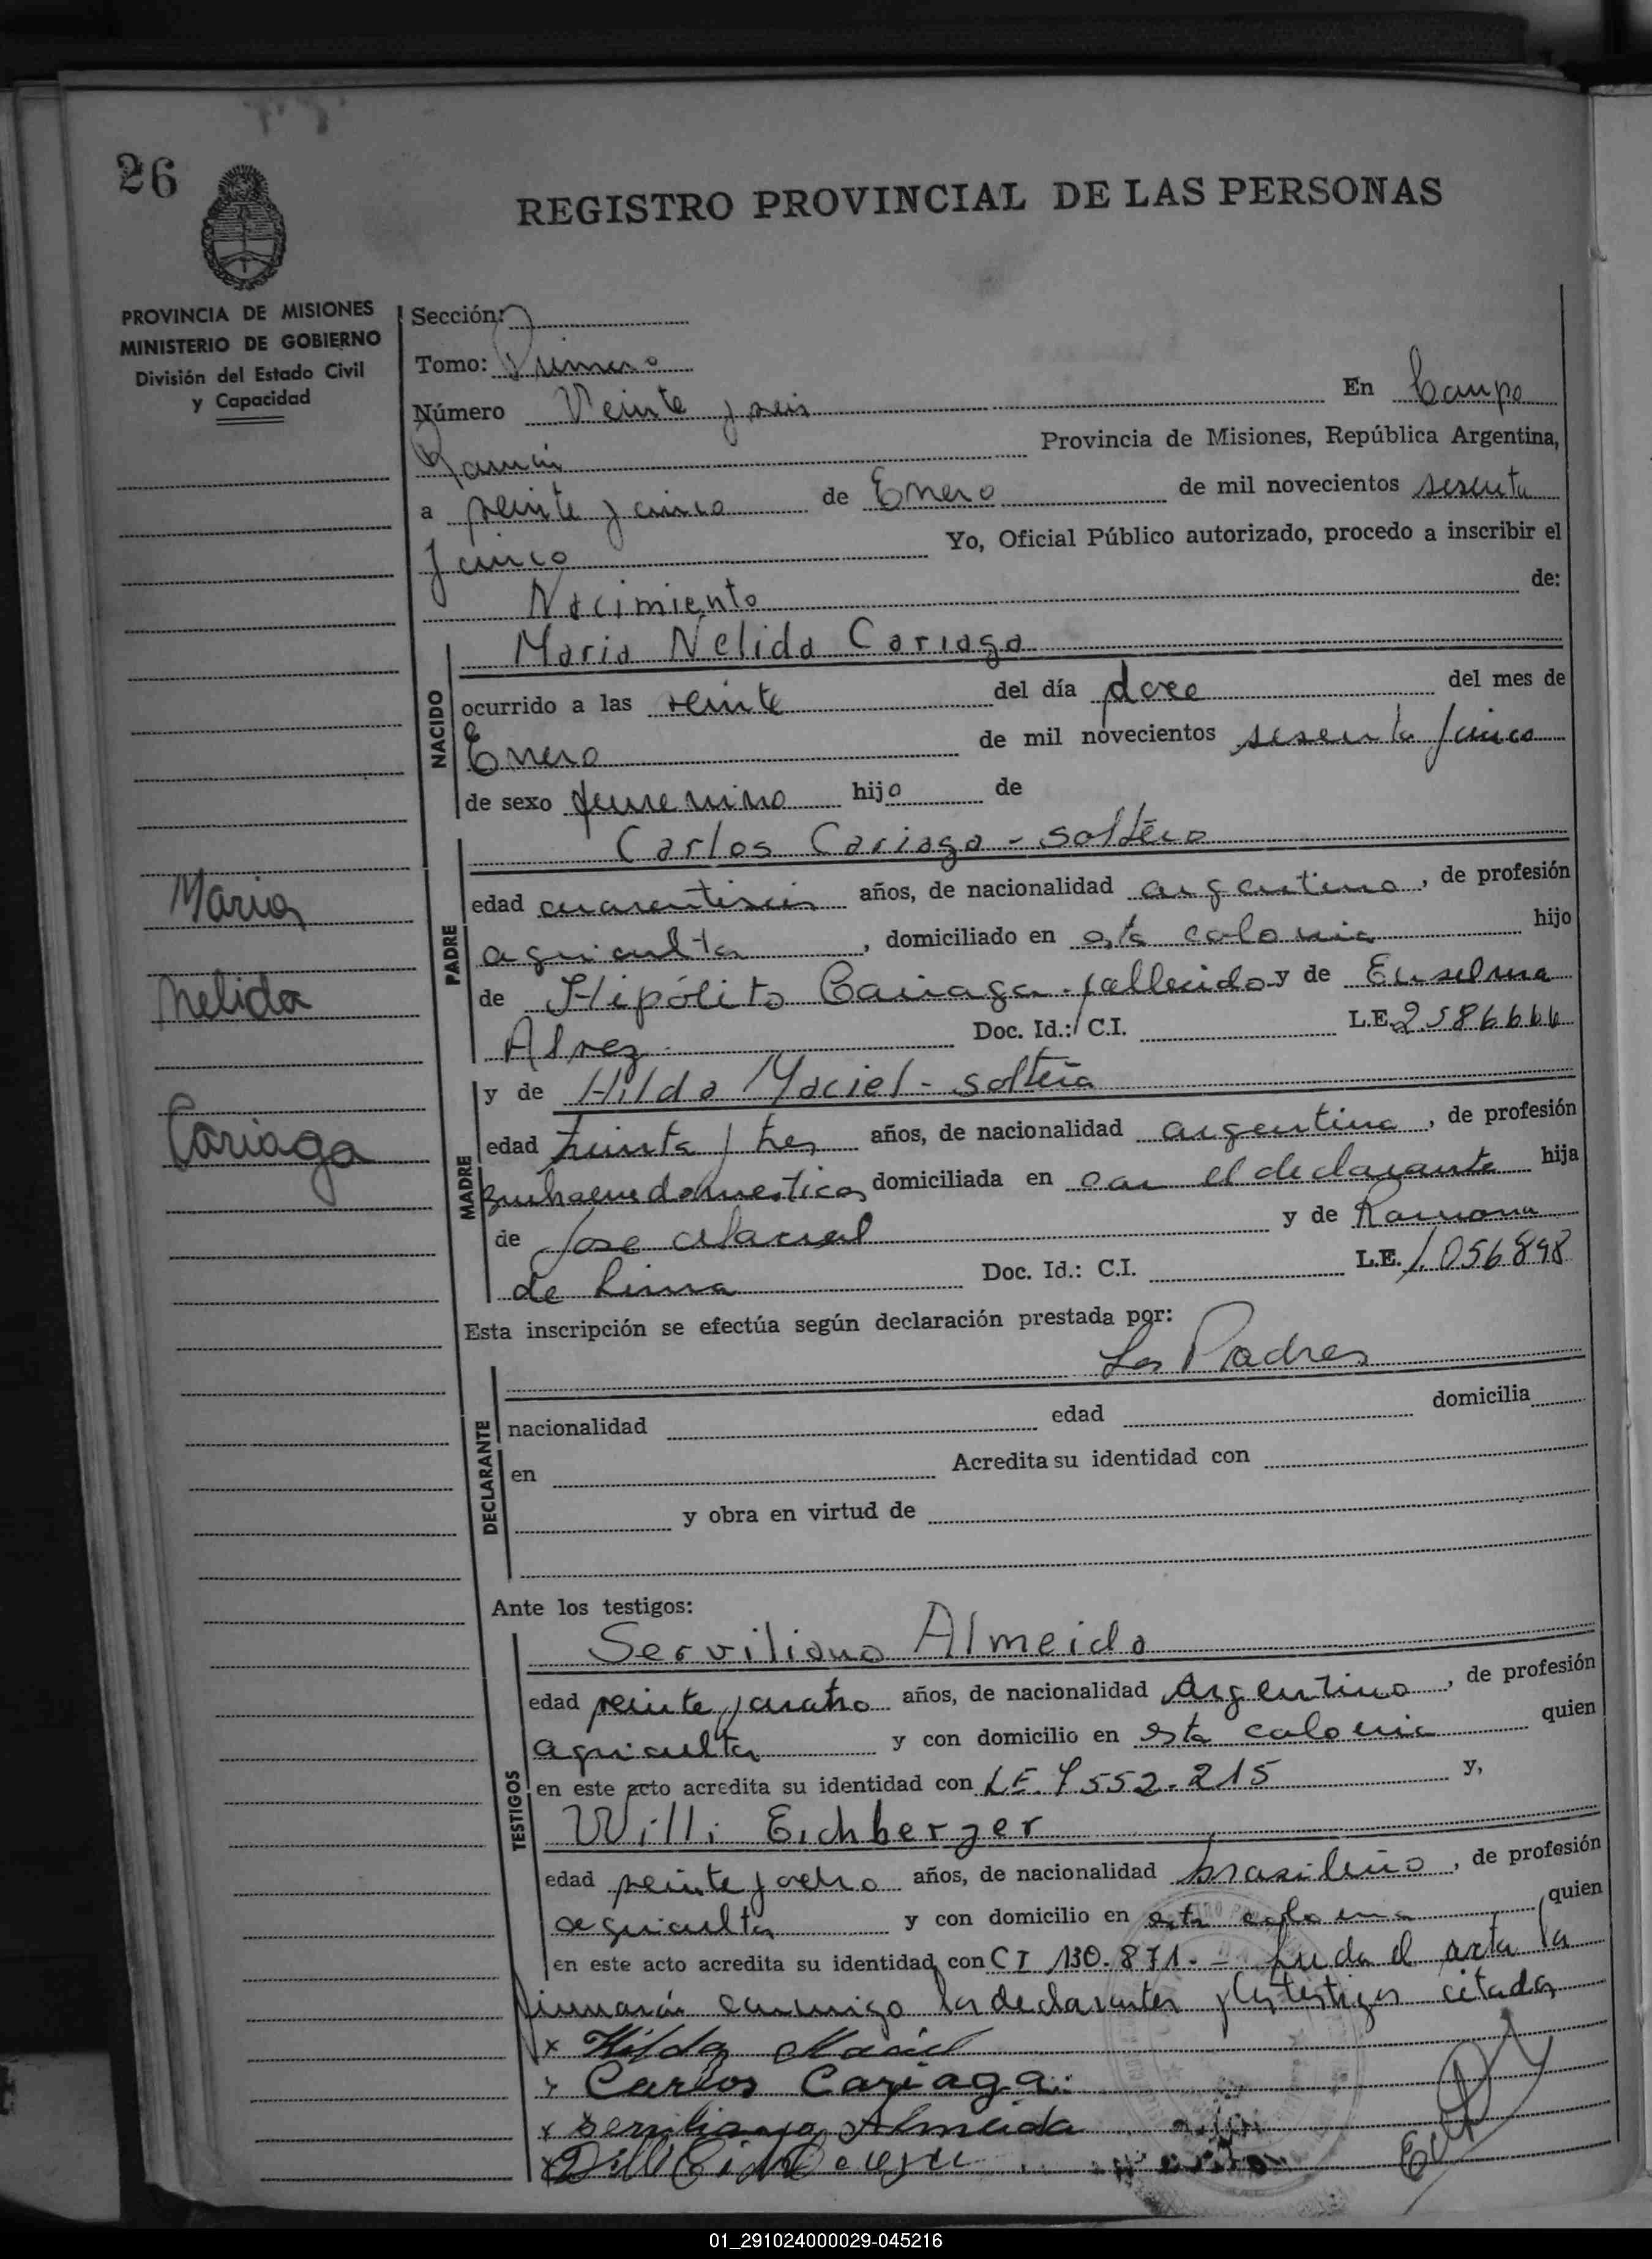 26
REGISTRO PROVINCIAL DE LAS PERSONAS
PROVINCIA DE MISIONES
MINISTERIO DE GOBIERNO
División del Estado Civil
y Capacidad
Sección:
Tomo: Primero
Número Veinte y seis En Campo
Ramón Provincia de Misiones, República Argentina,
a veinte y cinco de Enero de mil novecientos sesenta
y cinco Yo, Oficial Público autorizado, procedo a inscribir el
Nacimiento de:
Maria Nélida Cariaga
NACIDO
ocurrido a las veinte del día doce del mes de
Enero de mil novecientos sesenta y cinco
de sexo femenino hija de
Carlos Cariaga - soltero
PADRE
edad cuarentiseis años, de nacionalidad argentino, de profesión
agricultor, domiciliado en esta colonia hijo
de Hipólito Cariaga - fallecido y de Enselma
Alvez Doc. Id.: C.I. L.E. 2586666
y de Hilda Maciel - soltera
MADRE
edad treinta y tres años, de nacionalidad argentina, de profesión
quehaceres domesticos domiciliada en con el declarante hija
de Jose Maciel y de Ramona
de Lima Doc. Id.: C.I. L.E. 1.056898
Esta inscripción se efectúa según declaración prestada por:
Los Padres
DECLARANTE
nacionalidad edad domicilia
en Acredita su identidad con
y obra en virtud de
Ante los testigos:
Serviliano Almeida
TESTIGOS
edad veinte y cuatro años, de nacionalidad Argentino, de profesión
agricultor y con domicilio en esta colonia quien
en este acto acredita su identidad con LE. 7552.215 y,
Willi Eichberger
edad veinte y ocho años, de nacionalidad brasileño, de profesión
agricultor y con domicilio en esta colonia quien
en este acto acredita su identidad con CI 130.871. - Leida el acta la
firmarán conmigo los declarantes y los testigos citados
x Hilda Maciel
x Carlos Cariaga
x Serviliano Almeida
x Willi
Maria
Nelida
Cariaga
01_291024000029-045216